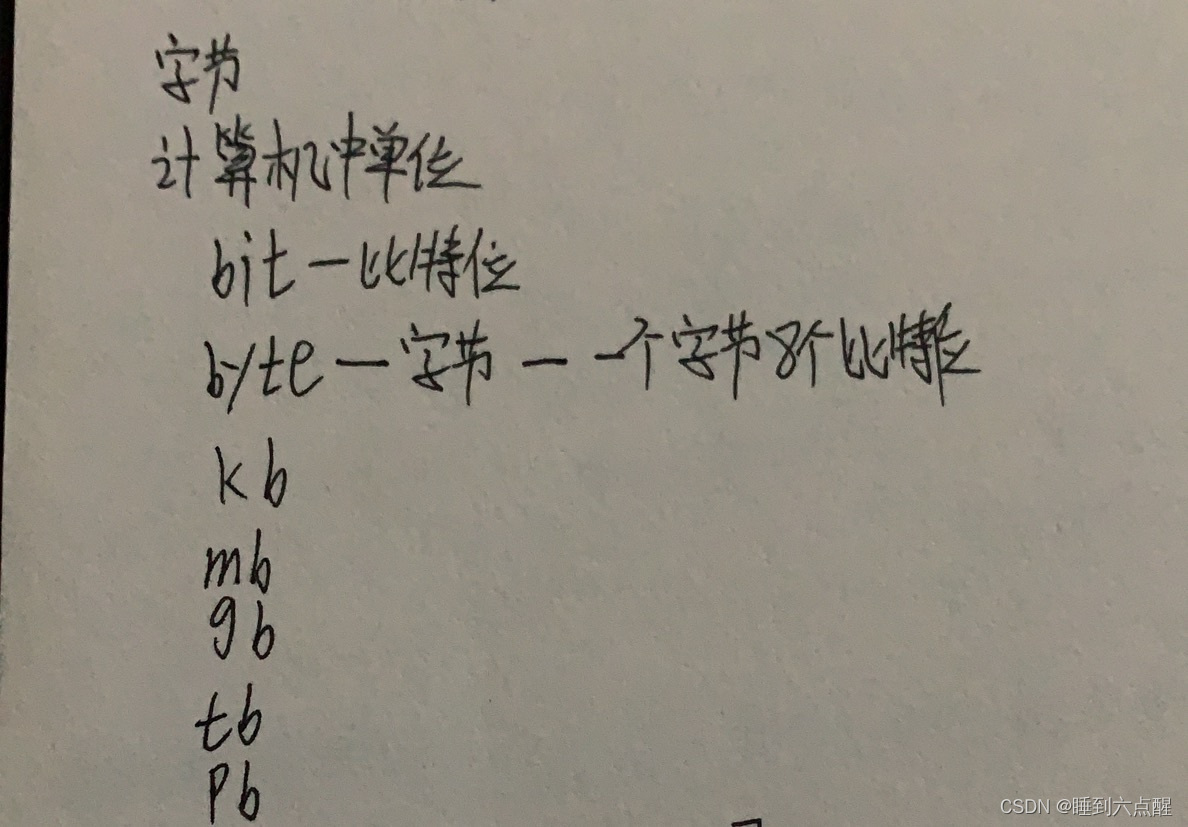 字节
计算机中单位
bit — 比特位
byte — 字节 — 一个字节8个比特位
kb
mb
gb
tb
pb
CSDN @睡到六点醒